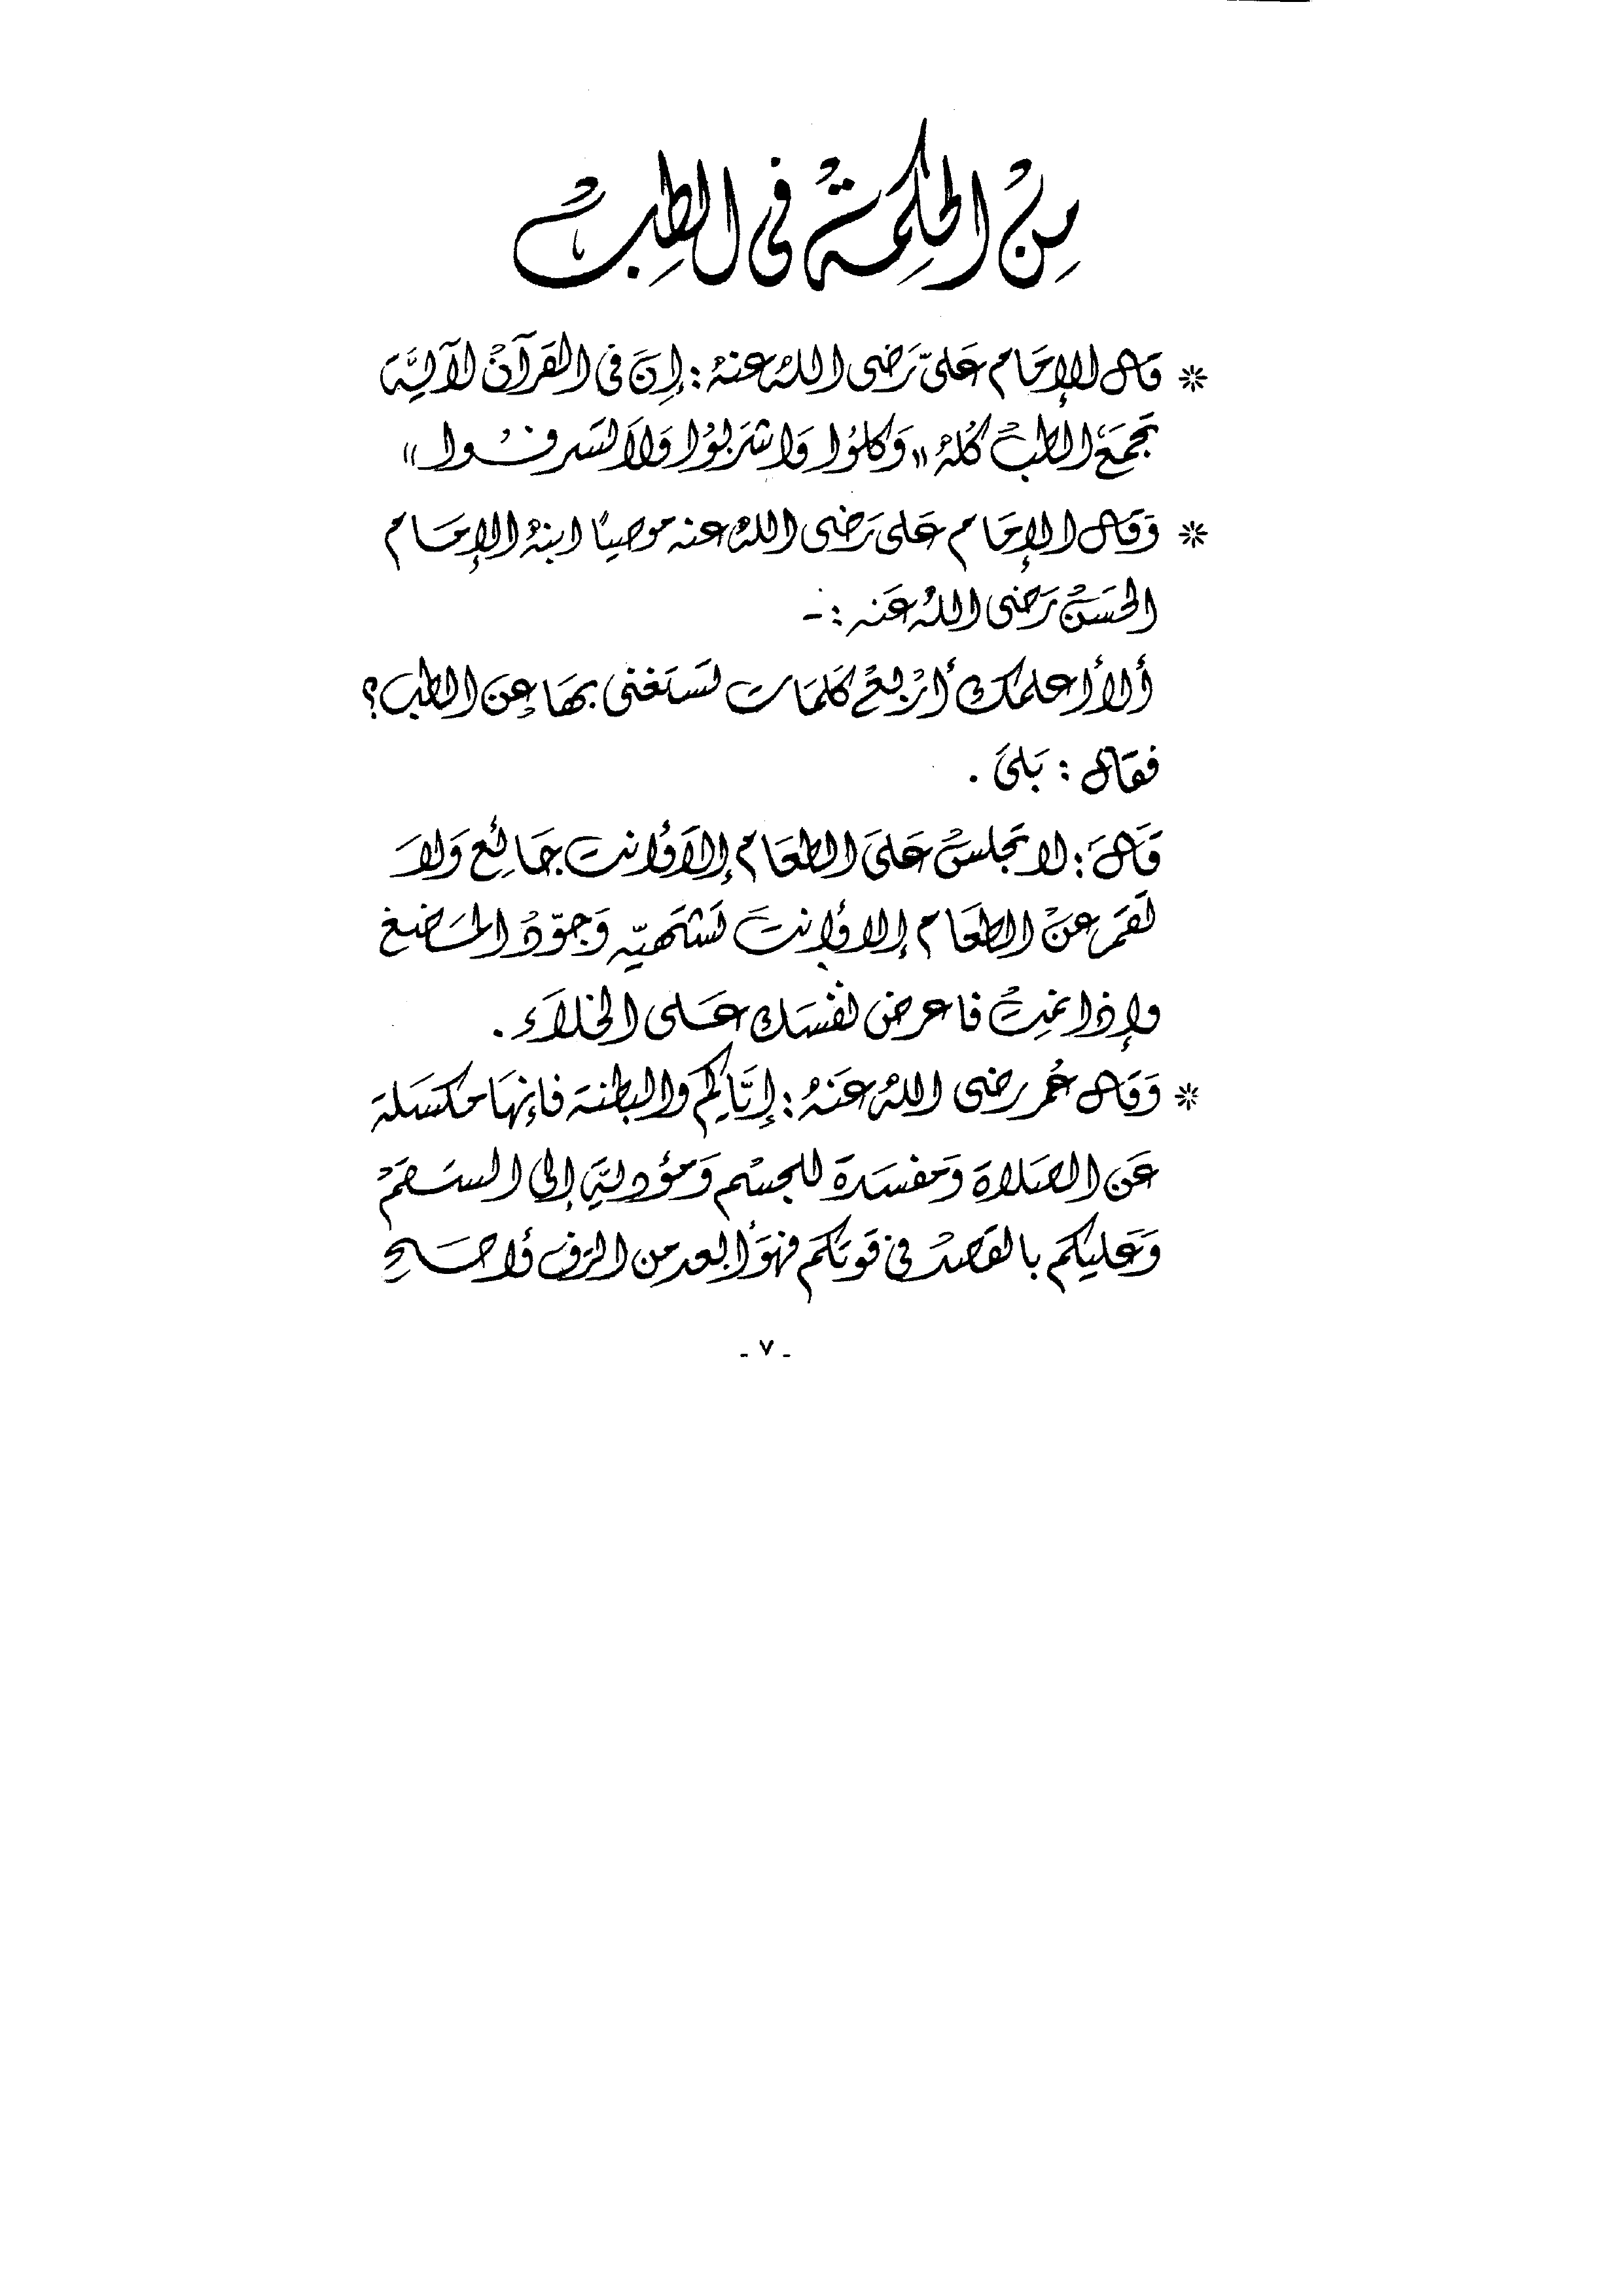 مِنْ الحِكمَةْ فى الطِبْ
* قَال الإِمَام عَلىّ رَضى اللهُ عنهُ : إِنَ فى القرآنْ لآيَة
تجمَعَ الطبْ كُلهُ "وَكلوُا وَاشرَبوُا وَلاَ تسَرفُوا"
* وَقَال الإِمَام عَلى رَضى اللهُ عنه موصيًا ابنهُ الإِمَام
الحَسَنْ رَضى اللهُ عَنه : -
ألا أعلمك أرْبعْ كَلمَات تسَتَغنى بهَا عن الطب ؟
فقال : بَلىَ .
قَالَ : لا تجَلسْ عَلىَ الطعَام إلاَ وَأنت جَائع وَلاَ
تقَم عنْ الطعَام إلا وأنتَ تَشتَهيّه وَجوّدْ المَضغ
وإذا نمِتْ فاعرض نفْسَك عَلى الخلاَء .
* وَقَال عُمر رضى اللهُ عَنهُ : إيَّاكم والبطنة فإنهَا مكسَلة
عَن الصَلاة وَمفسَدة للجسْم وَمؤديَة إلى السَقمْ
وَعَليكمَ بالقصَدْ فى قوتكَم فهوَ أبعد من السرف وأصَح
- ٧ -